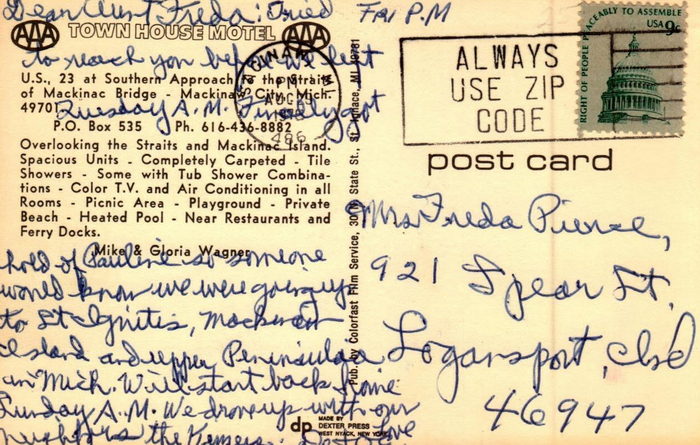 Dear Aunt Freda: Tried Fri P.M
AAA TOWN HOUSE MOTEL AAA
to reach you before we left
U.S., 23 at Southern Approach to the Straits
of Mackinac Bridge - Mackinaw City, Mich.
49701
Tuesday A.M. Finally got
P.O. Box 535 Ph. 616-436-8882
Overlooking the Straits and Mackinac Island.
Spacious Units - Completely Carpeted - Tile
Showers - Some with Tub Shower Combina-
tions - Color T.V. and Air Conditioning in all
Rooms - Picnic Area - Playground - Private
Beach - Heated Pool - Near Restaurants and
Ferry Docks.
Mike & Gloria Wagner
hold of Pauline so someone
would know we were going up
to St Ignitis, Mackinaw
Island and upper Peninsulaa
in Mich. Will start back home
Sunday A.M. We drove up with our
neighbors the Love
Pub. by Colorfast Film Service, 30 N State St., St. Ignace, MI 49781
dp
MADE BY
DEXTER PRESS
WEST NYACK, NEW YORK
PM
AUG
ALWAYS
USE ZIP
CODE
RIGHT OF PEOPLE PEACEABLY TO ASSEMBLE
USA 9c
post card
Mrs Freda Pierce,
921 Spear St.
Logansport, Ind
46947